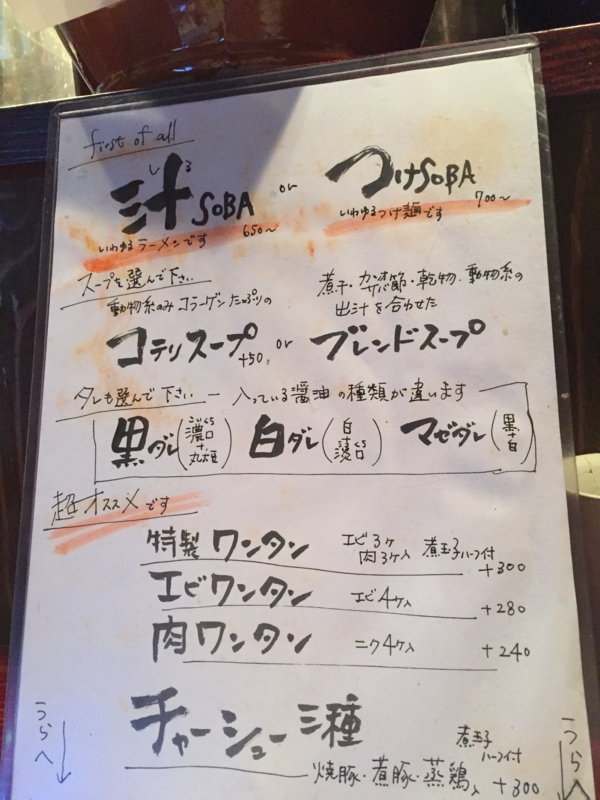 first of all
しる
汁SOBA or つけSOBA
650~ 700~
いわゆるラーメンです いわゆるつけ麺です
スープを選んで下さい
動物系のみコラーゲンたっぷりの
煮干・カツオ・サバ節・乾物・動物系の
出汁を合わせた
コテリスープ +50 or ブレンドスープ
タレも選んで下さい ー 入っている醤油の種類が違います
黒ダレ(濃口+丸大豆) 白ダレ(白+淡口) マゼダレ(黒+白)
超オススメです
特製ワンタン エビ3ヶ 肉3ヶ入 煮玉子ハーフ付 +300
エビワンタン エビ4ヶ入 +280
肉ワンタン ニク4ヶ入 +240
チャーシュー三種 煮玉子ハーフ付
焼豚・煮豚・蒸鶏入 +300
うらへ うらへ